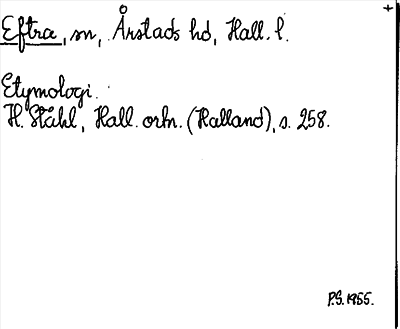 Eftra, sn, Årstads hd, Hall. l.
Etymologi.
H. Ståhl, Hall. ortn. (Halland), s. 258.
P.S. 1955.